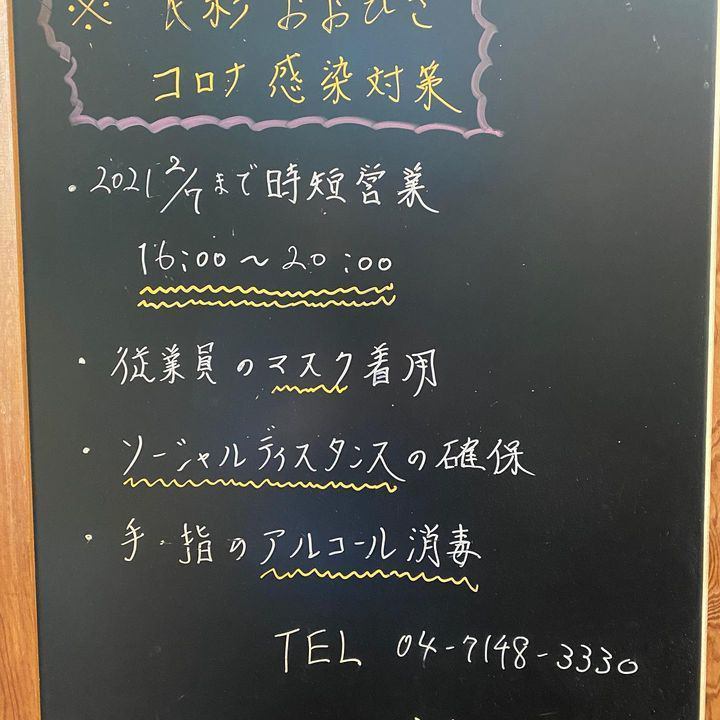 ※ 民彩 おおひさ
コロナ感染対策
・2021 2/7まで時短営業
16:00～20:00
・従業員のマスク着用
・ソーシャルディスタンスの確保
・手・指のアルコール消毒
TEL 04-7148-3330